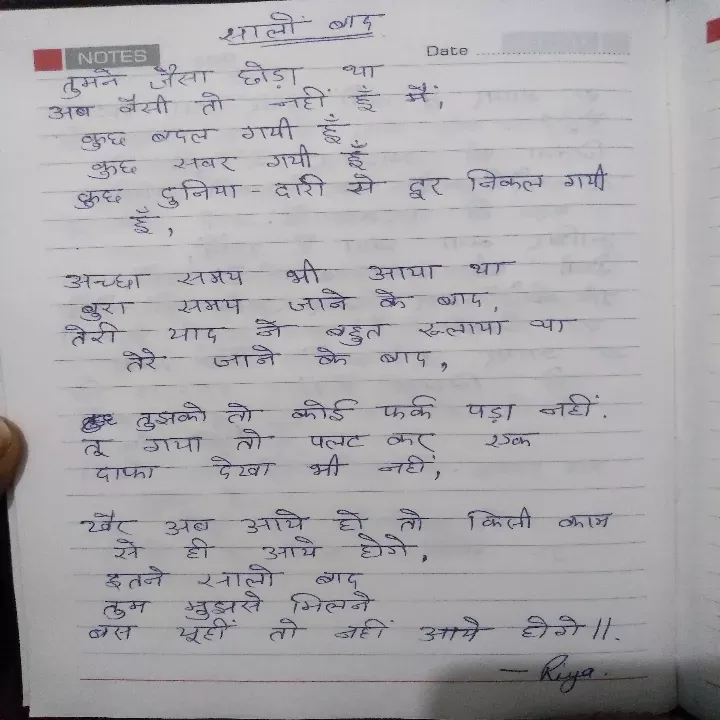 सालों बाद
NOTES
Date
तुमने जैसा छोड़ा था
अब वैसी तो नहीं हूँ मैं,
कुछ बदल गयी हूँ,
कुछ सवर गयी हूँ
कुछ दुनिया-दारी से दूर निकल गयी
हूँ,
अच्छा समय भी आया था
बुरा समय जाने के बाद,
तेरी याद ने बहुत रूलाया था
तेरे जाने के बाद,
तुझको तो कोई फर्क पड़ा नहीं.
तू गया तो पलट कर एक
दाफा देखा भी नहीं,
खैर अब आये हो तो किसी काम
से ही आये होगे,
इतने सालो बाद
तुम मुझसे मिलने
बस यूहीं तो नहीं आये होगे॥.
— Riya.